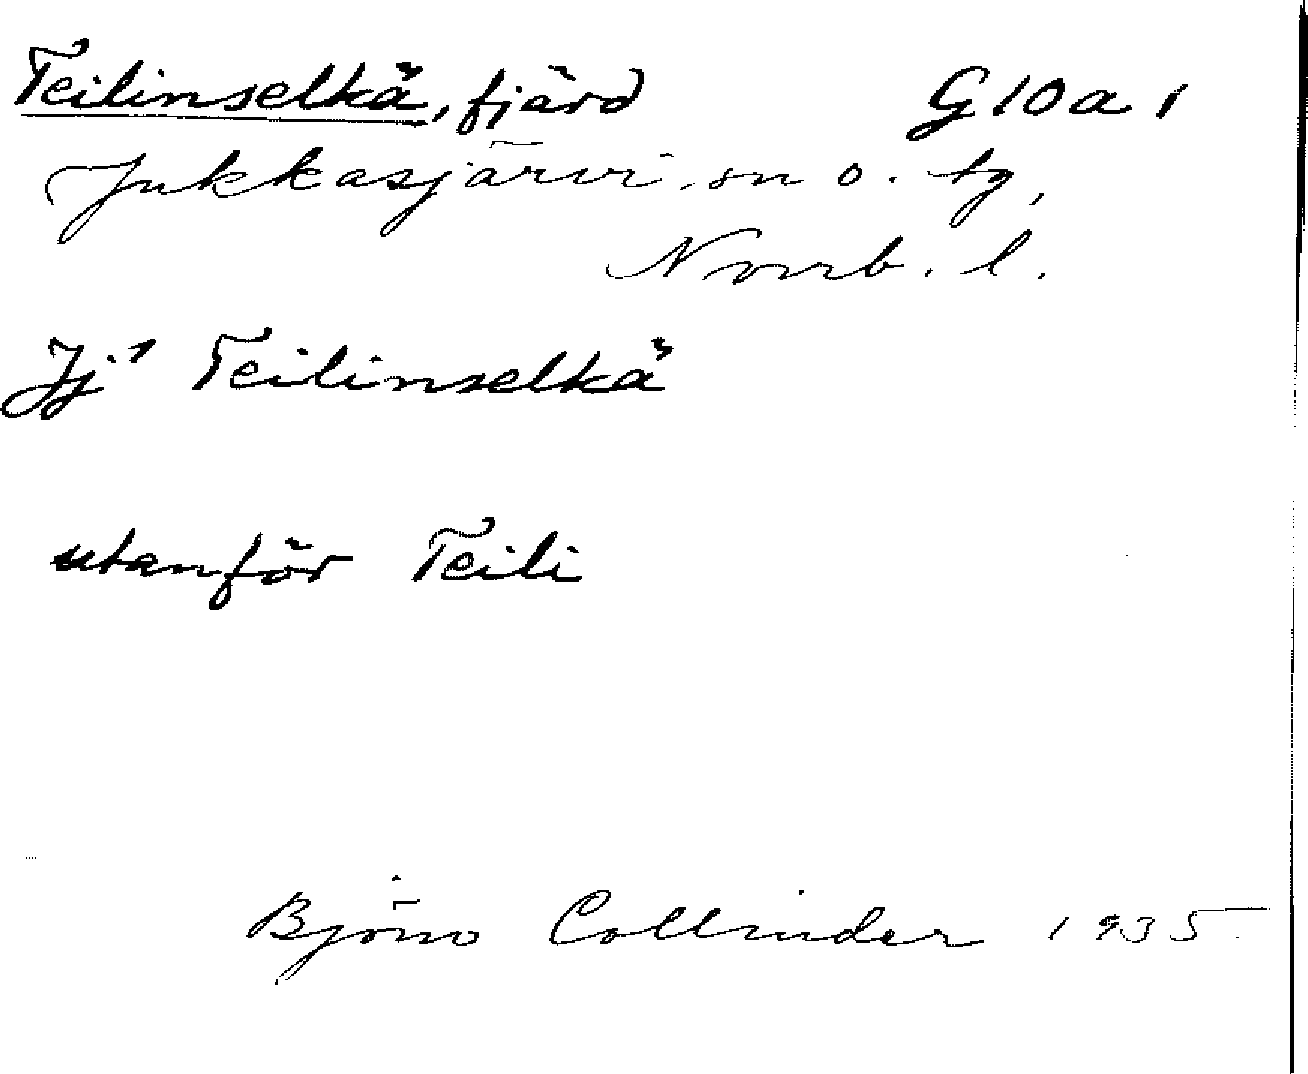 Teilinselkä, fjärd G10a1
Jukkasjärvi, sn o. tg,
Norrb. l.
Jj¹ Teilinselkä
utanför Teili
Björn Collinder 1935